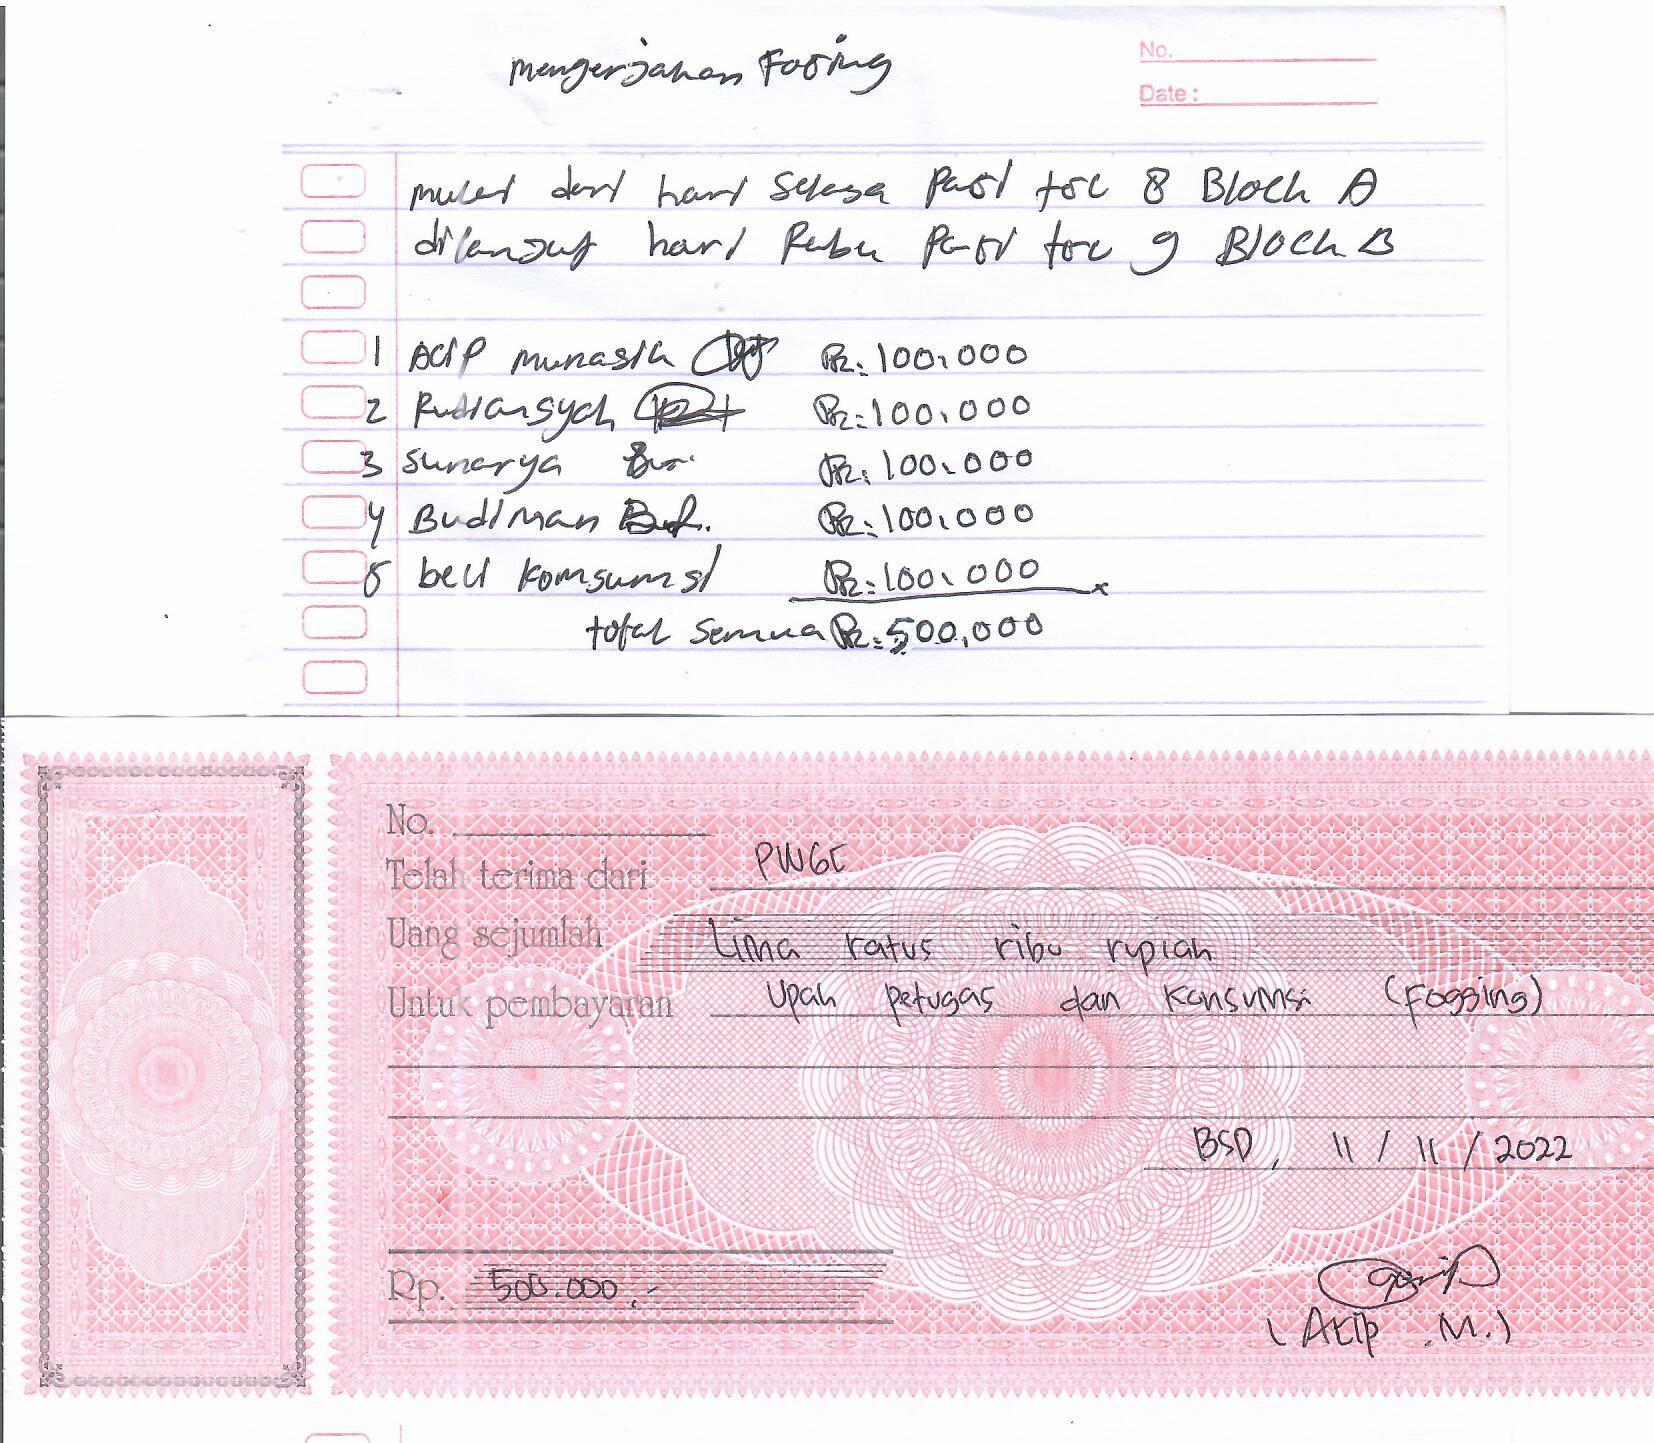 mengerjakan Foging
No.
Date :
mulai dari hari Selasa pagi tgl 8 Block A
dilanjut hari Rabu pagi tgl 9 Block B
1 Acip munasik Rp: 100.000
2 Rudiansyah Rp: 100.000
3 Sunarya Rp: 100.000
4 Budiman Rp: 100.000
5 beli komsumsi Rp: 100.000
total semua Rp: 500.000
No.
Telah terima dari PWGC
Uang sejumlah Lima ratus ribu rupiah
Untuk pembayaran Upah petugas dan Konsumsi (Fogging)
BSD, 11 / 11 / 2022
Rp. 500.000,-
(Atip .M.)